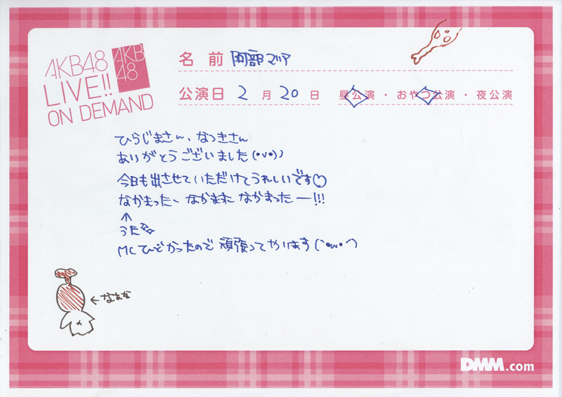 AKB48
LIVE!!
ON DEMAND
AKB
48
名前 阿部マリア
公演日 2月20日 昼公演・おやつ公演・夜公演
ひらじまさん、なつきさん
ありがとうございました(•v•)
今日も出させていただけてうれしいです
なかまった、なかまaた なかまったー!!!
↑
うた
MCひどかったので 頑張ってやります
←なぁな
DMM.com